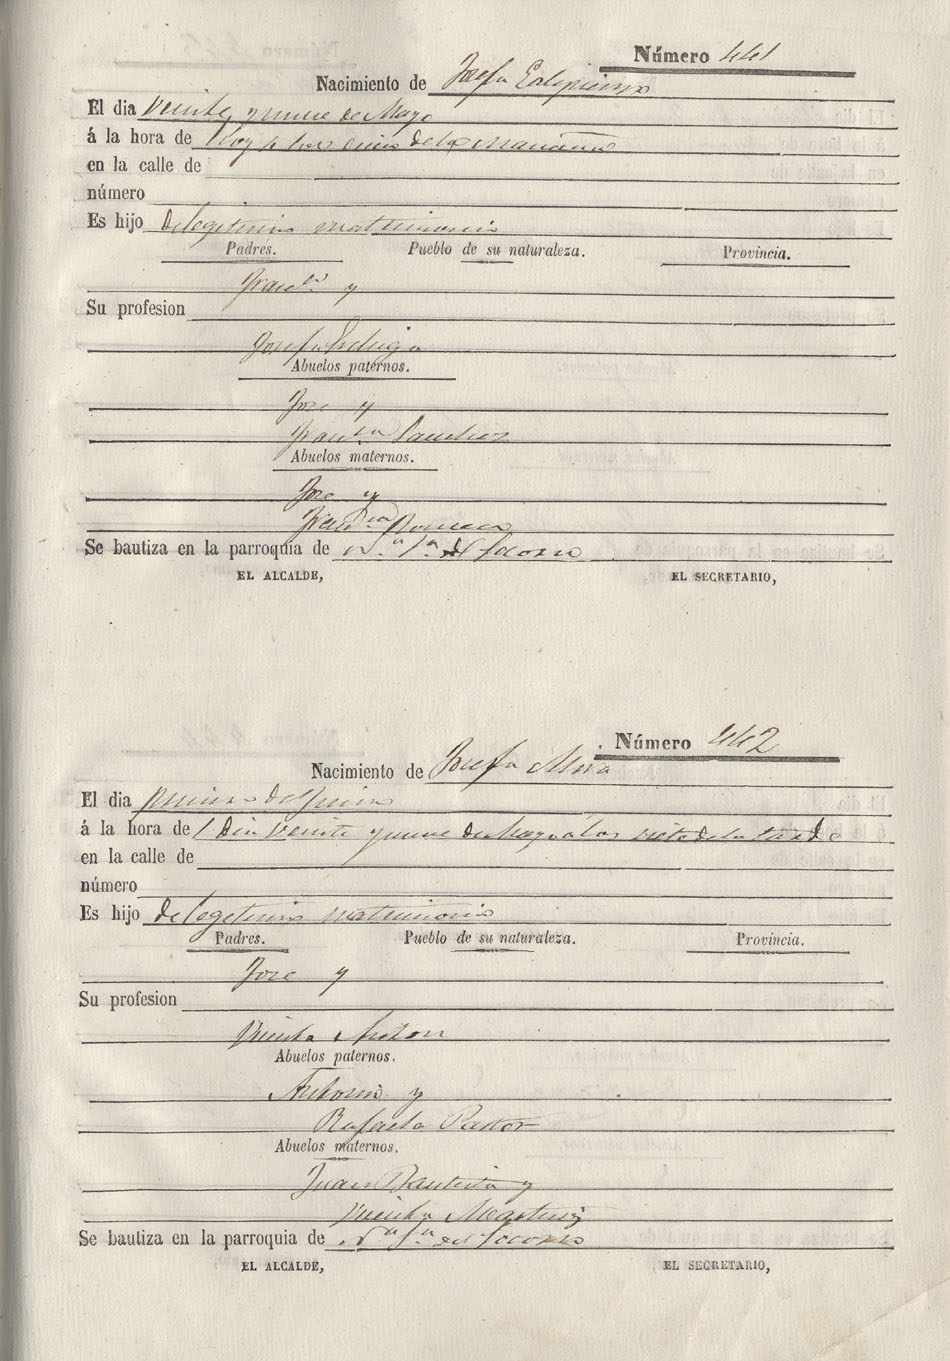 Número 441
Nacimiento de Josefa
El dia veinte y nueve de Mayo
á la hora de hoy a las cinco de la mañana
en la calle de
número
Es hijo de legitimo matrimonio
Padres. Pueblo de su naturaleza. Provincia.
Franco. y
Su profesion
Josefa
Abuelos paternos.
Jose y
Franca Sanchez
Abuelos maternos.
Jose y
Franca
Se bautiza en la parroquia de Na. Sa. del Socorro
EL ALCALDE, EL SECRETARIO,
Número 442
Nacimiento de Josefa Mora
El dia primero de Junio
á la hora de l Dia veinte y nueve de Mayo a las siete de la tarde
en la calle de
número
Es hijo de legitimo matrimonio
Padres. Pueblo de su naturaleza. Provincia.
Jose y
Su profesion
Vicenta Anton
Abuelos paternos.
Antonio y
Rafaela Pastor
Abuelos maternos.
Juan Bautista y
Vicenta Martinez
Se bautiza en la parroquia de Na. Sa. del Socorro
EL ALCALDE, EL SECRETARIO,